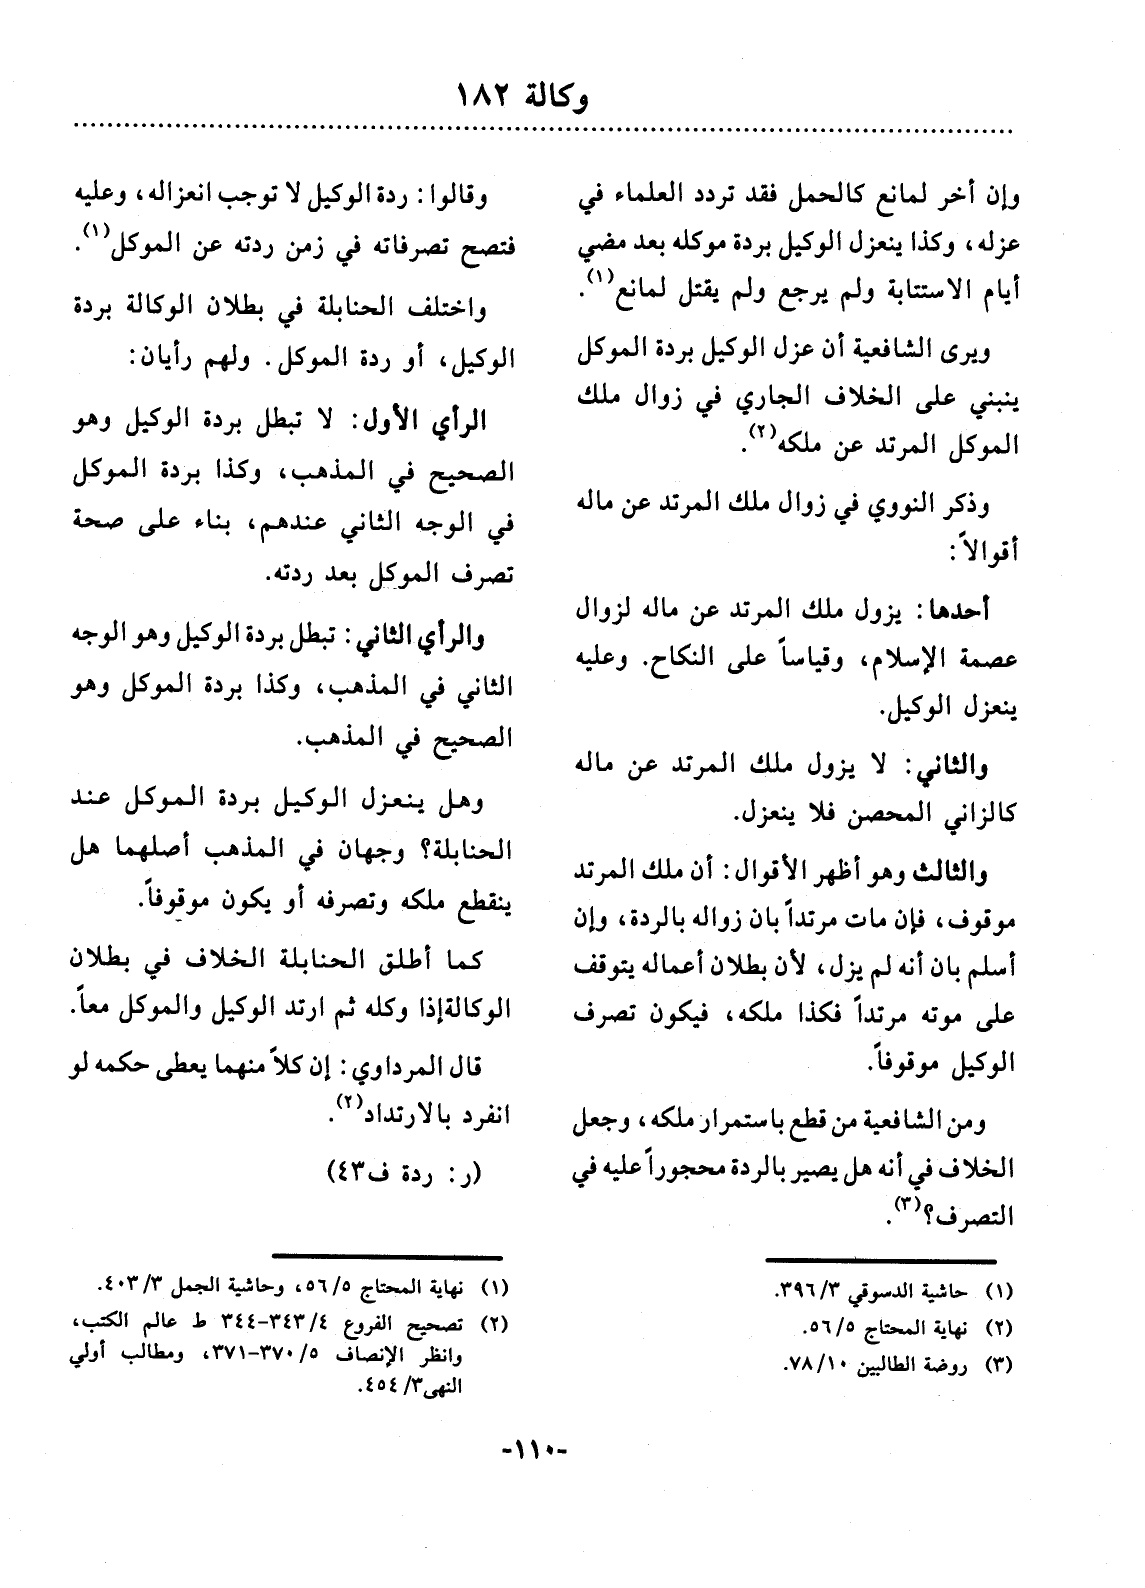 وكالة ١٨٢
وإن أخر لمانع كالحمل فقد تردد العلماء في
عزله، وكذا ينعزل الوكيل بردة موكله بعد مضي
أيام الاستتابة ولم يرجع ولم يقتل لمانع(١).
ويرى الشافعية أن عزل الوكيل بردة الموكل
ينبني على الخلاف الجاري في زوال ملك
الموكل المرتد عن ملكه(٢).
وذكر النووي في زوال ملك المرتد عن ماله
أقوالاً:
أحدها: يزول ملك المرتد عن ماله لزوال
عصمة الإسلام، وقياساً على النكاح. وعليه
ينعزل الوكيل.
والثاني: لا يزول ملك المرتد عن ماله
كالزاني المحصن فلا ينعزل.
والثالث وهو أظهر الأقوال: أن ملك المرتد
موقوف، فإن مات مرتداً بان زواله بالردة، وإن
أسلم بان أنه لم يزل، لأن بطلان أعماله يتوقف
على موته مرتداً فكذا ملكه، فيكون تصرف
الوكيل موقوفاً.
ومن الشافعية من قطع باستمرار ملكه، وجعل
الخلاف في أنه هل يصير بالردة محجوراً عليه في
التصرف؟(٣).
(١) حاشية الدسوقي ٣/ ٣٩٦.
(٢) نهاية المحتاج ٥/ ٥٦.
(٣) روضة الطالبين ١٠/ ٧٨.
وقالوا: ردة الوكيل لا توجب انعزاله، وعليه
فتصح تصرفاته في زمن ردته عن الموكل(١).
واختلف الحنابلة في بطلان الوكالة بردة
الوكيل، أو ردة الموكل. ولهم رأيان:
الرأي الأول: لا تبطل بردة الوكيل وهو
الصحيح في المذهب، وكذا بردة الموكل
في الوجه الثاني عندهم، بناء على صحة
تصرف الموكل بعد ردته.
والرأي الثاني: تبطل بردة الوكيل وهو الوجه
الثاني في المذهب، وكذا بردة الموكل وهو
الصحيح في المذهب.
وهل ينعزل الوكيل بردة الموكل عند
الحنابلة؟ وجهان في المذهب أصلهما هل
ينقطع ملكه وتصرفه أو يكون موقوفاً.
كما أطلق الحنابلة الخلاف في بطلان
الوكالةإذا وكله ثم ارتد الوكيل والموكل معاً.
قال المرداوي: إن كلاً منهما يعطى حكمه لو
انفرد بالارتداد(٢).
(ر: ردة ف٤٣)
(١) نهاية المحتاج ٥/ ٥٦، وحاشية الجمل ٣/ ٤٠٣.
(٢) تصحيح الفروع ٤/ ٣٤٣-٣٤٤ ط عالم الكتب،
وانظر الإنصاف ٥/ ٣٧٠-٣٧١، ومطالب أولي
النهى٣/ ٤٥٤.
-١١٠-